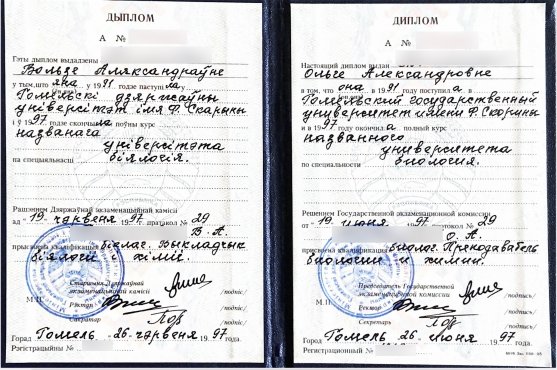 ДЫПЛОМ
А №
Гэты дыплом выдадзены
Вользе Аляксандраўне
у тым, што яна у 1991 годзе паступіла у
Гомельскі дзяржаўны
універсітэт імя Ф. Скарыны
і ў 1997 годзе скончыла поўны курс
названага
універсітэта
па спецыяльнасці
біялогія.
Рашэннем Дзяржаўнай экзаменацыйнай камісіі
ад 19 чэрвеня 1997 г. пратакол № 29
В. А.
прысвоена кваліфікацыя Біёлаг. Выкладчык
біялогіі і хіміі.
Старшыня Дзяржаўнай
экзаменацыйнай камісіі
/подпіс/
М.П.
Рэктар
/подпіс/
Сакратар
/подпіс/
Горад Гомель 26 чэрвеня 1997 года.
Рэгістрацыйны №
ДИПЛОМ
А №
Настоящий диплом выдан
Ольге Александровне
в том, что она в 1991 году поступила в
Гомельский государственный
университет имени Ф. Скорины
и в 1997 году окончила полный курс
названного
университета
по специальности
биология.
Решением Государственной экзаменационной комиссии
от 19 июня 1997 г. протокол № 29
О. А.
присвоена квалификация Биолог. Преподаватель
биологии и химии.
Председатель Государственной
экзаменационной комиссии
/подпись/
М.П.
Ректор
/подпись/
Секретарь
/подпись/
Город Гомель 26 июня 1997 года.
Регистрационный №